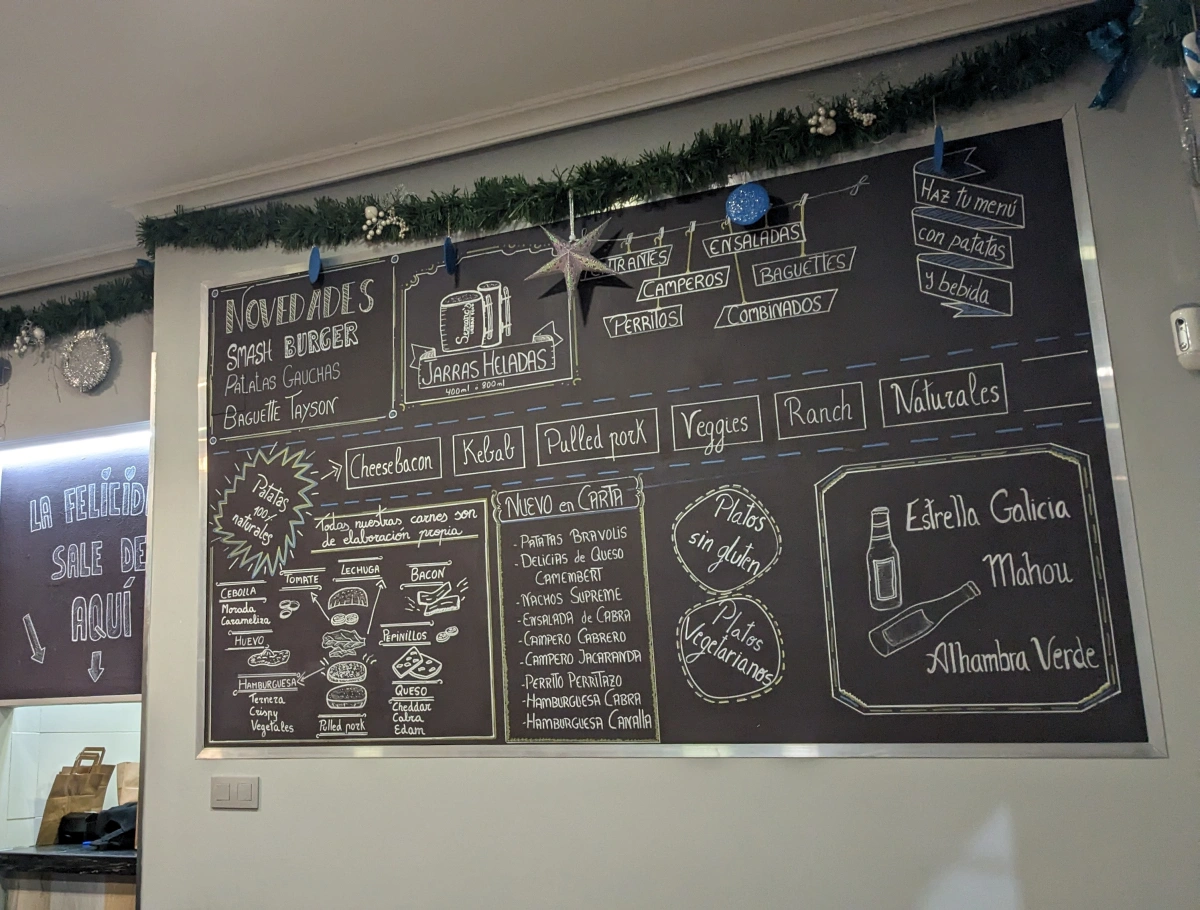 NOVEDADES
SMASH BURGER
PATATAS GAUCHAS
BAGUETTE TAYSON
JARRAS HELADAS
400ml o 800ml
ENSALADAS
CAMPEROS
BAGUETTES
PERRITOS
COMBINADOS
HAZ tu menú
con patatas
y bebida
Patatas
100%
naturales
Cheesebacon
Kebab
Pulled pork
Veggies
Ranch
Naturales
Todas nuestras carnes son
de elaboración propia
CEBOLLA
Morada
Carameliza
HUEVO
HAMBURGUESA
Ternera
Crispy
Vegetales
TOMATE
LECHUGA
Pulled pork
BACON
PEPINILLOS
QUESO
Cheddar
Cabra
Edam
NUEVO en CARTA
- PATATAS BRAVOLIS
- DELICIAS de QUESO
CAMEMBERT
- NACHOS SUPREME
- ENSALADA de CABRA
- CAMPERO CABRERO
- CAMPERO JACARANDA
- PERRITO PERRITAZO
- HAMBURGUESA CABRA
- HAMBURGUESA CANALLA
Platos
sin gluten
Platos
Vegetarianos
Estrella Galicia
Mahou
Alhambra Verde
LA
SALE DE
AQUÍ